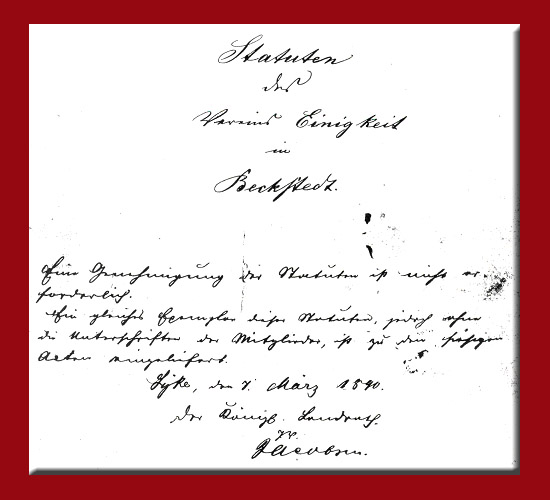 Statuten
des
Vereins Einigkeit
in
Beckstedt.
Eine Genehmigung der Statuten ist nicht er-
forderlich.
Ein gleiches Exemplar dieser Statuten, jedoch ohne
die Unterschriften der Mitglieder, ist zu den hiesigen
Acten eingeliefert.
Syke, den 7. März 1890.
Der Königl. Landrath.
Jacobsen.